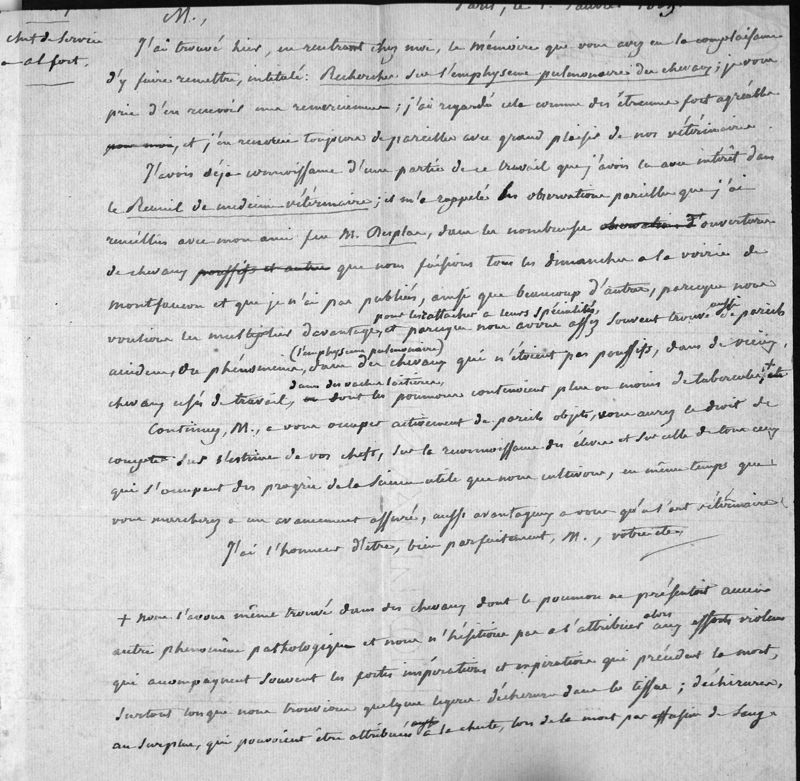 Paris, le 1er Janvier
M.,
chef de Service
a alfort.
J'ai trouvé hier, en rentrant chez moi, le mémoire que vous avez eu la complaisance
d'y faire remettre, intitulé: Recherches sur l'emphyseme pulmonaire des chevaux; je vous
prie d'en recevoir mes remerciemens; j'ai regardé cela comme des étrennes fort agréables
pour moi, et j'en recevrai toujours de pareilles avec grand plaisir de nos vétérinaires
J'avois déja connoissance d'une partie de ce travail que j'avois lu avec intérêt dans
le Recueil de medecine vétérinaire; il m'a rappelé les observations pareilles que j'ai
recueillies avec mon ami feu M. Desplas, dans les nombreuses observations d' ouvertures
de chevaux poussifs et autres que nous faisions tous les dimanches a la voirie de
montfaucon et que je n'ai pas publiés, ainsi que beaucoup d'autres, parceque nous
pour les rattacher a leurs spécialités,
voulions les multiplier davantage, et parceque nous avons assez souvent trouvé aussi de pareils
(l'emphyseme pulmonaire)
accidens, ou phénomènes, dans des chevaux qui n'étoient pas poussifs, dans de vieux
dans des vaches laitieres,
chevaux usés de travail, ou dont les poumons contenoient plus ou moins de tubercules +
Continuez, M., a vous occuper activement de pareils objets, vous aurez le droit de
compter sur l'estime de vos chefs, sur la reconnoissance des élèves et sur celle de tous ceux
qui s'occupent des progrès de la Science utile que nous cultivons, en même temps que
vous marcherez a un avancement assuré, aussi avantageux a vous qu'a l'art vétérinaire
J'ai l'honneur d'être, bien parfaitement, M., votre etc.
+ nous l'avons même trouvé dans des chevaux dont le poumon ne présentoit aucun
autre phénomène pathologique et nous n'hésitions pas a l'attribuer alors aux efforts violens
qui accompagnent souvent les fortes inspirations et expirations qui précèdent la mort,
surtout lorsque nous trouvions quelques legeres déchirures dans le tissu; déchirures,
au surplus, qui pouvoient être attribuées aussi a la chute, lors de la mort par effusion de Sang